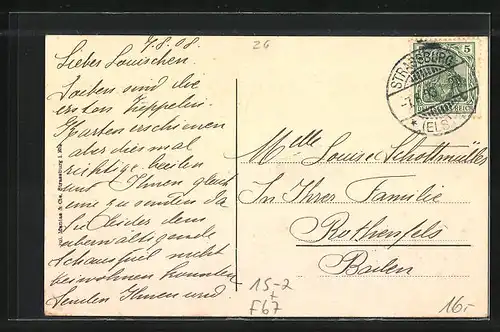 7.8.08.
Liebes Louischen.
Soeben sind die
ersten Zeppelin-
Karten erschienen
aber diesmal
richtige, beeilen
uns Ihnen gleich
eine zu senden da
Sie leider dem
überwältigende
Schauspiel nicht
beiwohnen konnten
Senden Ihnen und
26
STRASSBURG
* (ELS)
5
Melle Louise Schottmüller
In Ihrer Familie
Rothenfels
Baden
15-2
F67
16.-